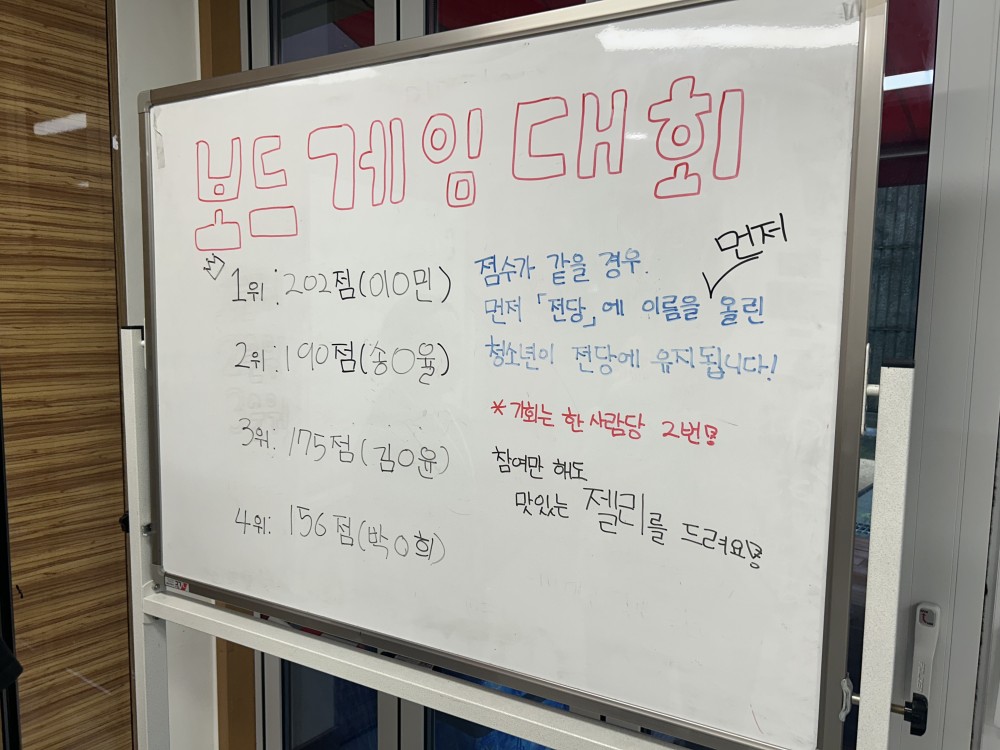 보드게임대회
1위: 202점(이O민)
2위: 190점(송O율)
3위: 175점(김O윤)
4위: 156점(박O희)
점수가 같을 경우.
먼저 「전당」에 이름을 먼저 올린
청소년이 전당에 유지됩니다!
* 기회는 한 사람당 2번!
참여만 해도
맛있는 젤리를 드려요!